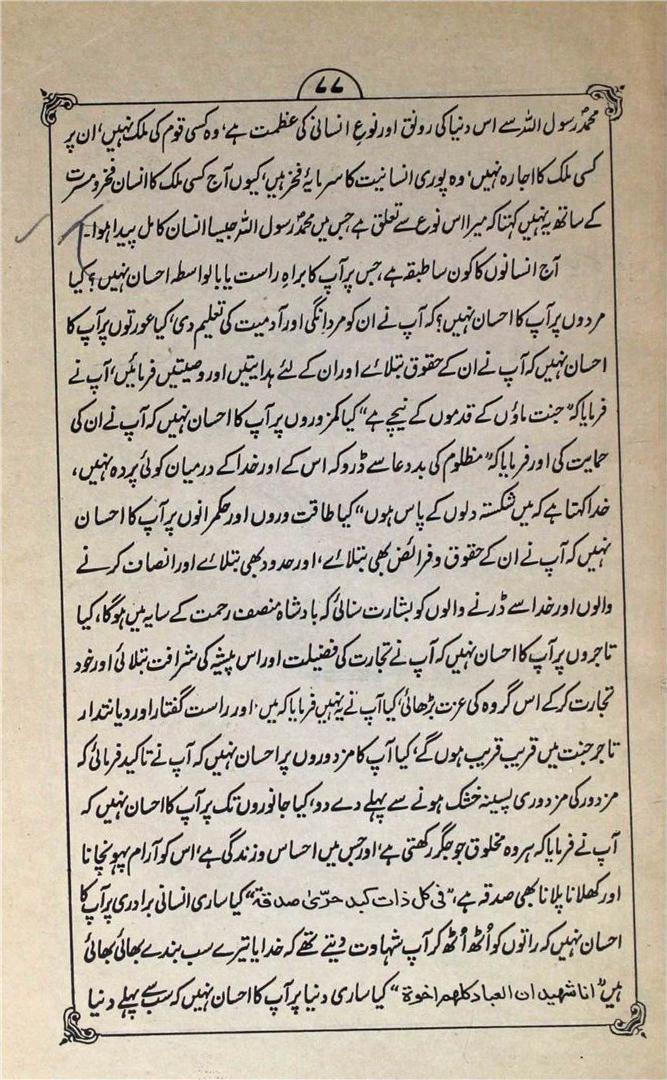 ۷۷
محمدؐ رسول اللہ سے اس دنیا کی رونق اور نوعِ انسانی کی عظمت ہے، وہ کسی قوم کی ملک نہیں، ان پر
کسی ملک کا اجارہ نہیں، وہ پوری انسانیت کا سرمایۂ فخر ہیں، کیوں آج کسی ملک کا انسان فخر و مسرت
کے ساتھ یہ نہیں کہتا کہ میرا اس نوع سے تعلق ہے جس میں محمدؐ رسول اللہ جیسا انسان کامل پیدا ہوا۔
آج انسانوں کا کون سا طبقہ ہے، جس پر آپ کا براہِ راست یا بالواسطہ احسان نہیں؟ کیا
مردوں پر آپ کا احسان نہیں؟ کہ آپ نے ان کو مردانگی اور آدمیت کی تعلیم دی، کیا عورتوں پر آپ کا
احسان نہیں کہ آپ نے ان کے حقوق بتلائے اور ان کے لئے ہدایتیں اور وصیتیں فرمائیں، آپ نے
فرمایا کہ "جنت ماؤں کے قدموں کے نیچے ہے" کیا کمزوروں پر آپ کا احسان نہیں کہ آپ نے ان کی
حمایت کی اور فرمایا کہ "مظلوم کی بددعا سے ڈرو کہ اس کے اور خدا کے درمیان کوئی پردہ نہیں،
خدا کہتا ہے کہ میں شکستہ دلوں کے پاس ہوں" کیا طاقت وروں اور حکمرانوں پر آپ کا احسان
نہیں کہ آپ نے ان کے حقوق و فرائض بھی بتلائے، اور حدود بھی بتلائے اور انصاف کرنے
والوں اور خدا سے ڈرنے والوں کو بشارت سنائی کہ بادشاہ منصف رحمت کے سایہ میں ہوگا، کیا
تاجروں پر آپ کا احسان نہیں کہ آپ نے تجارت کی فضیلت اور اس پیشہ کی شرافت بتلائی اور خود
تجارت کرکے اس گروہ کی عزت بڑھائی، کیا آپ نے یہ نہیں فرمایا کہ میں اور راست گفتار اور دیانتدار
تاجر جنت میں قریب قریب ہوں گے، کیا آپ کا مزدوروں پر احسان نہیں کہ آپ نے تاکید فرمائی کہ
مزدور کی مزدوری پسینہ خشک ہونے سے پہلے دے دو، کیا جانوروں تک پر آپ کا احسان نہیں کہ
آپ نے فرمایا کہ ہر وہ مخلوق جو جگر رکھتی ہے، اور جس میں احساس و زندگی ہے، اس کو آرام پہونچانا
اور کھلانا پلانا بھی صدقہ ہے، "فی کل ذات کبد حرّیٰ صدقۃ" کیا ساری انسانی برادری پر آپ کا
احسان نہیں کہ راتوں کو اُٹھ اُٹھ کر آپ شہادت دیتے تھے کہ خدایا تیرے سب بندے بھائی بھائی
ہیں "انا شھید ان العباد کلھم اخوۃ" کیا ساری دنیا پر آپ کا احسان نہیں کہ سب سے پہلے دنیا